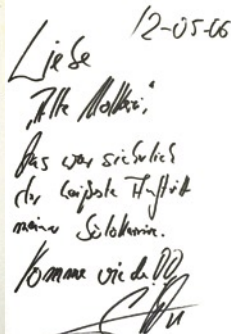 12-05-06
Liebe
"Alte Molkerei",
das war sicherlich
der heißeste Auftritt
meiner Solokarriere.
Komme wieder!